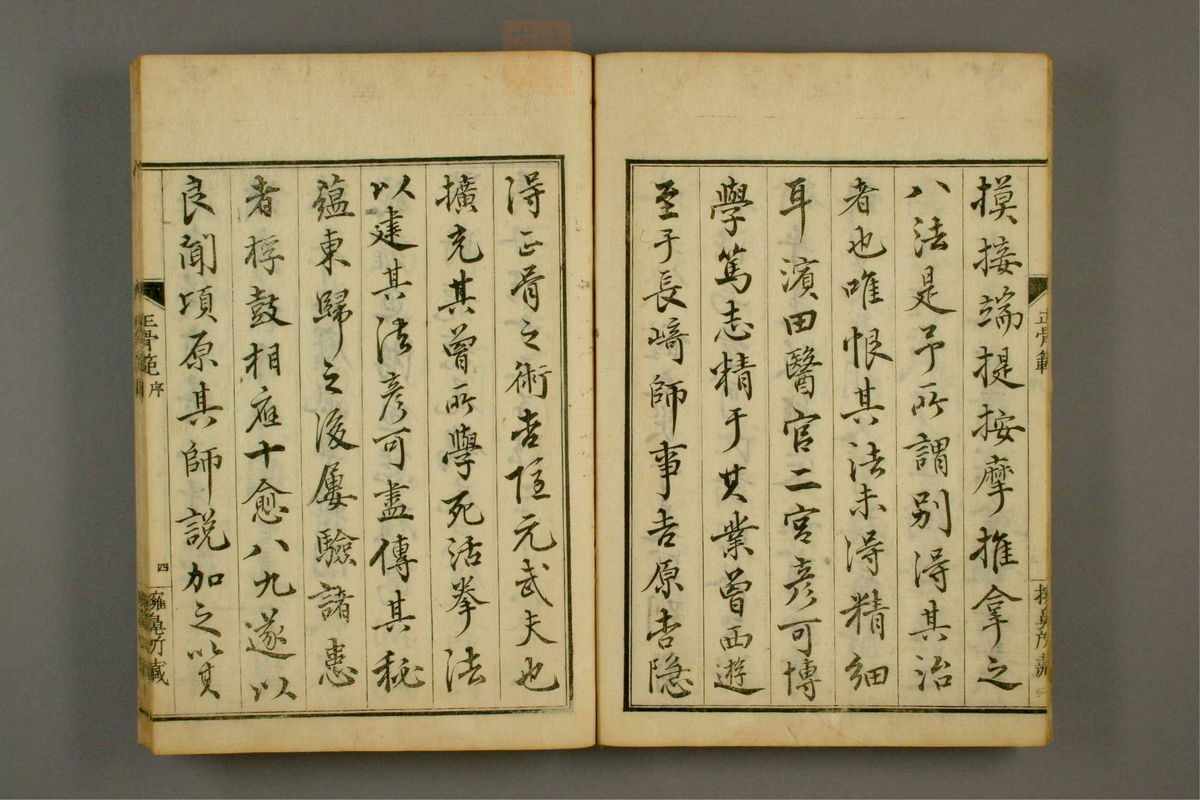 摸接端提按摩推拿之
八法是予所謂別得其治
者也唯恨其法未得精細
耳濱田醫官二宮彦可博
學篤志精于其業曽西遊
至于長﨑師事吉原杏隠
正骨範
得正骨之術杏隠元武夫也
擴充其曽所學死活拳法
以建其法彦可盡傳其秘
蘊東歸之後屢驗諸患
者桴鼓相應十愈八九遂以
良聞頃原其師説加之以其
正骨範 序
四
擁鼻所藏